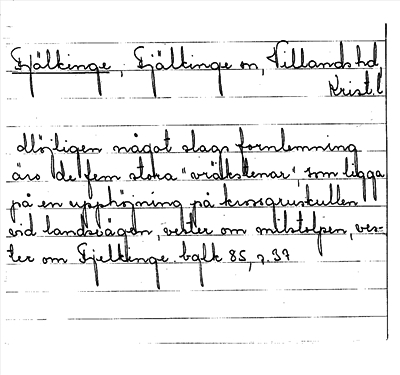 Fjälkinge, Fjälkinge sn, Villands hd,
Krist l
Möjligen något slags fornlemning
äro de fem stora "vräkstenar", som ligga
på en upphöjning på krossgruskullen
vid landsvägen, vester om milstolpen, ves-
ter om Fjelkinge. bglk 85, s. 37